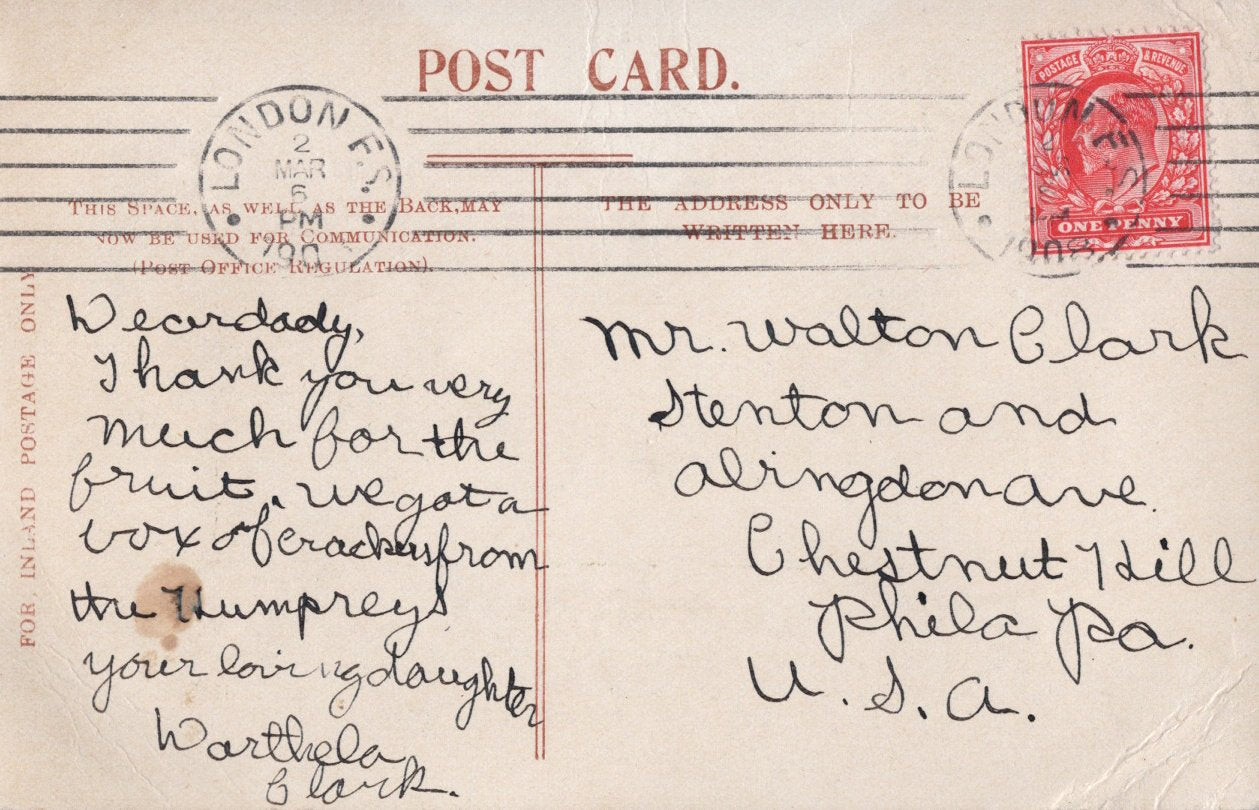 POST CARD.
LONDON F.S.
2
MAR
6
PM
190
POSTAGE & REVENUE
ONE PENNY
LONDON F.S.
1908
THIS SPACE, AS WELL AS THE BACK, MAY
NOW BE USED FOR COMMUNICATION.
(POST OFFICE REGULATION).
THE ADDRESS ONLY TO BE
WRITTEN HERE.
FOR INLAND POSTAGE ONLY
Decordady,
Thank you very
much for the
fruit. We got a
box of crackers from
the Humpreys
your loving daughter
Clark.
Mr. Walton Clark
Stenton and
abingdon ave.
Chestnut Hill
Phila Pa.
U.S.A.